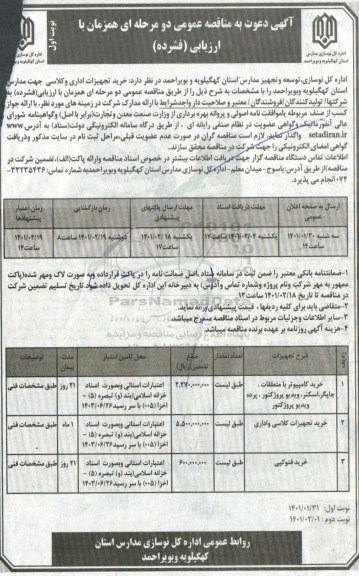 آگهی دعوت به مناقصه عمومی دو مرحله ای همزمان با
ارزیابی (فشرده)
نوبت اول
اداره کل نوسازی،توسعه وتجهیز مدارس استان کهگیلویه و بویراحمد در نظر دارد: خرید تجهیزات اداری وکلاسی جهت مدارس
استان کهگیلویه وبویراحمد را با مشخصات به شرح ذیل را از طریق مناقصه عمومی دو مرحله ای همزمان با ارزیابی(فشرده) به
شرکتها/ تولیدکنندگان/فروشندگان/ معتبر و صلاحیت دار واجدشرایط با ارائه مدارک شرکت در زمینه های مورد نظر، با ارائه جواز
کسب از صنف مربوطه یاموافقت نامه اصولی و پروانه بهره برداری از وزارت صنعت معدن وتجارت(برابر با اصل) وگواهینامه شورای
عالی انفورماتیک وگواهی عضویت در نظام صنفی رایانه ای ، از طریق درگاه سامانه الکترونیکی دولت(ستاد) به آدرس www.
setadiran.ir واگذار نماید. لازم است مناقصه گران در صورت عدم عضویت قبلی،مراحل ثبت نام در سایت مذکور ودریافت
گواهی امضای الکترونیکی را جهت شرکت در مناقصه محقق سازند.
اطلاعات تماس دستگاه مناقصه گزار جهت دریافت اطلاعات بیشتر در خصوص اسناد مناقصه وارائه پاکت(الف)،تضمین شرکت در
مناقصه:از طریق آدرس:یاسوج - میدان معلم - اداره کل نوسازی مدارس استان کهگیلویه وبویراحمدبه شماره تماس: ۳۳۳۳۵۴۳۶-
۰۷۴ انجام می پذیرد.
ارسال به صفحه اعلان عمومی | مهلت دریافت اسناد | مهلت ارسال پاکتهای پیشنهادی | زمان بازگشایی | زمان اعتبار پیشنهادها
سه شنبه ۱۴۰۱/۰۱/۳۰ ساعت ۱۴ | یکشنبه ۱۴۰۱/۰۲/۰۴ ساعت ۱۷ | یکشنبه ۱۴۰۱/۰۲/۱۸ ساعت ۱۷ | دوشنبه ۱۴۰۱/۰۲/۱۹ ساعت ۸ | ۱۴۰۱/۰۴/۱۹ ساعت ۱۴
۱-ضمانتنامه بانکی معتبر را ضمن ثبت در سامانه ستاد،اصل ضمانت نامه را در پاکت قرارداده وبه صورت لاک ومهر شده(پاکت
ممهور به مهر شرکت ونام پروژه وشماره تماس وآدرس) به دبیرخانه این اداره کل تحویل داده شود.تاریخ تسلیم تضمین شرکت
در مناقصه تا تاریخ ۱۴۰۱/۰۲/۱۸ ساعت ۱۳
۲-متقاضی باید برای کلیه ردیفها، قیمت پیشنهادی ارائه نماید.
۳- سایر اطلاعات وجزئیات مربوط در اسناد مناقصه مندرج میباشد.
۴-هزینه آگهی روزنامه بر عهده برنده مناقصه میباشد.
ردیف | شرح تجهیزات | تعداد /مقدار | مبلغ تضمین(ریال) | محل تامین اعتبار | مدت پیمان | توضیحات
۱ | خرید کامپیوتر با متعلقات ، چاپگر،اسکنر، ویدیو پروژکتور ، پرده ویدیو پروژکتور | طبق لیست | ۲.۲۷۰.۰۰۰.۰۰۰ | اعتبارات استانی وبصورت اسناد خزانه اسلامی(بند (و) تبصره (۵) - اخزا (۰۰۵) با سر رسید ۱۴۰۳/۰۶/۲۶ | ۲۱ روز | طبق مشخصات فنی
۲ | خرید تجهیزات کلاسی واداری | طبق لیست | ۵.۵۰۰.۰۰۰.۰۰۰ | اعتبارات استانی وبصورت اسناد خزانه اسلامی(بند (و) تبصره (۵) - اخزا (۰۰۵) با سر رسید ۱۴۰۳/۰۶/۲۶ | ۱ ماه | طبق مشخصات فنی
۳ | خرید فتوکپی | طبق لیست | ۶۰۰.۰۰۰.۰۰۰ | اعتبارات استانی وبصورت اسناد خزانه اسلامی(بند (و) تبصره (۵) - اخزا (۰۰۵) با سر رسید ۱۴۰۳/۰۶/۲۶ | ۲۱ روز | طبق مشخصات فنی
نوبت اول: ۱۴۰۱/۰۱/۳۱
نوبت دوم : ۱۴۰۱/۰۲/۰۱
روابط عمومی اداره کل نوسازی مدارس استان
کهگیلویه وبویراحمد